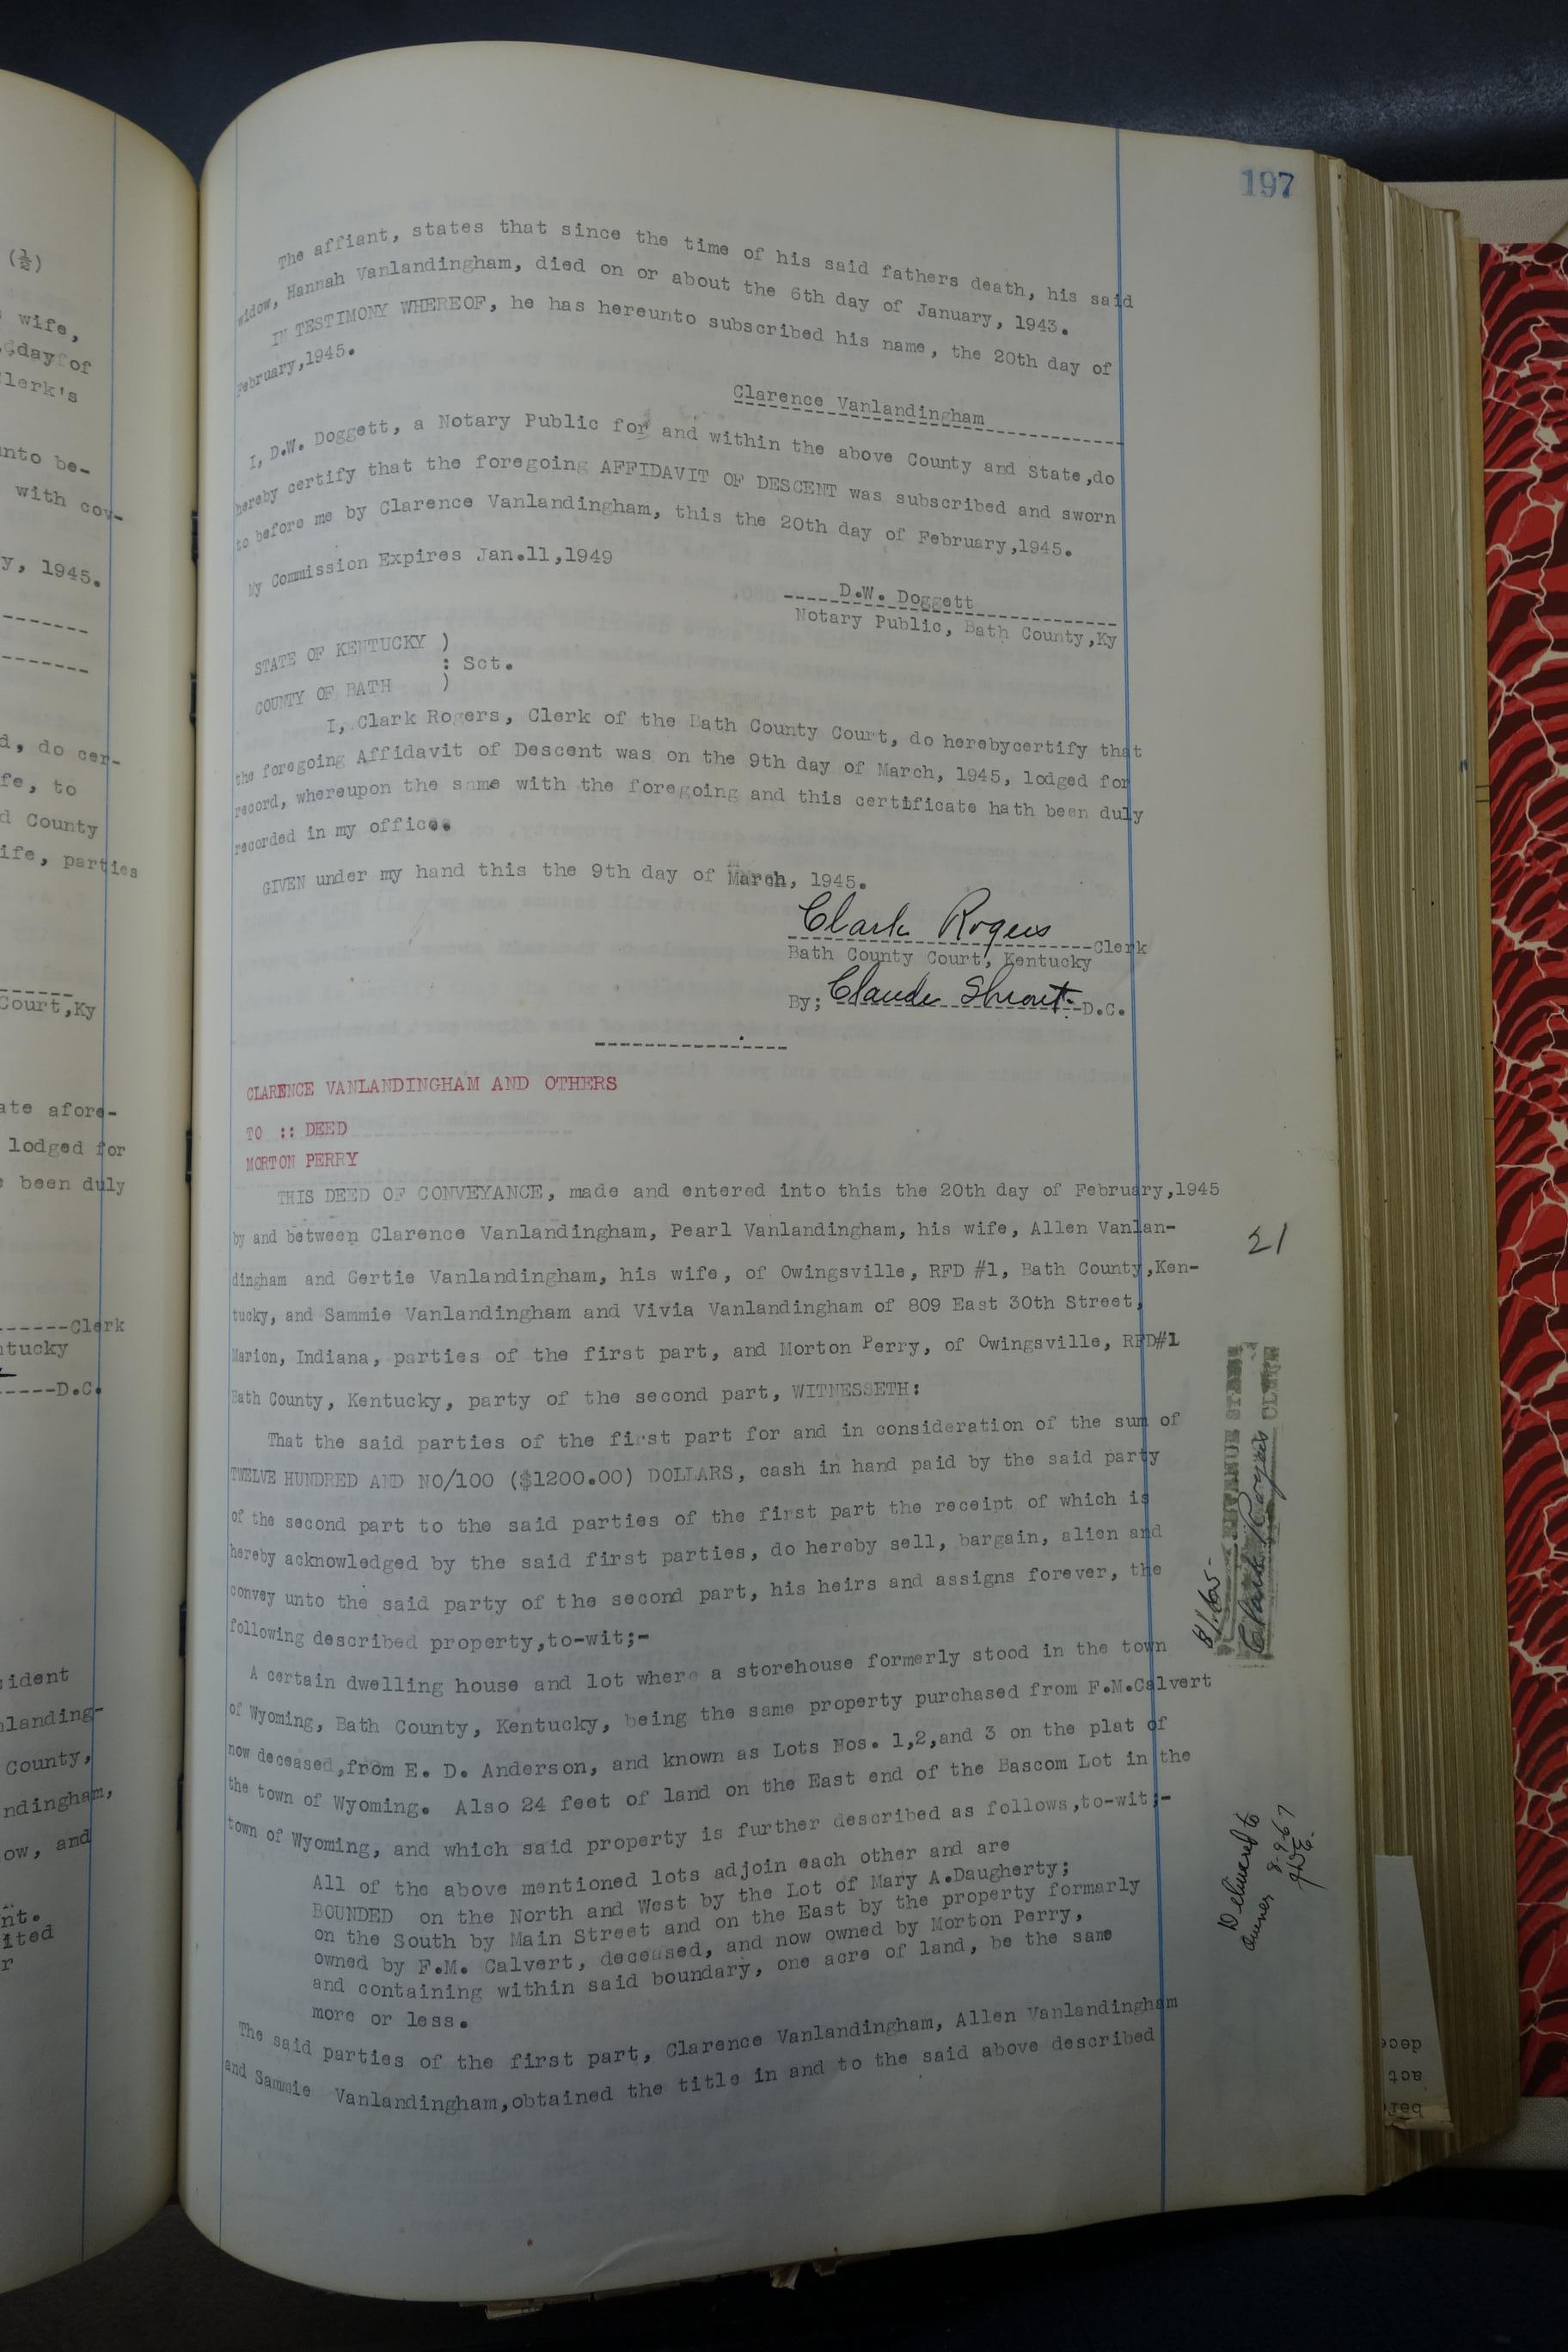 197
The affiant, states that since the time of his said fathers death, his said
widow, Hannah Vanlandingham, died on or about the 6th day of January, 1943.
IN TESTIMONY WHEREOF, he has hereunto subscribed his name, the 20th day of
February,1945.
Clarence Vanlandingham
I, D.W. Doggett, a Notary Public for and within the above County and State,do
hereby certify that the foregoing AFFIDAVIT OF DESCENT was subscribed and sworn
to before me by Clarence Vanlandingham, this the 20th day of February,1945.
My Commission Expires Jan.11,1949
D.W. Doggett
Notary Public, Bath County,Ky
STATE OF KENTUCKY )
: Sct.
COUNTY OF BATH )
I, Clark Rogers, Clerk of the Bath County Court, do herebycertify that
the foregoing Affidavit of Descent was on the 9th day of March, 1945, lodged for
record, whereupon the same with the foregoing and this certificate hath been duly
recorded in my office.
GIVEN under my hand this the 9th day of March, 1945.
Clark Rogers Clerk
Bath County Court, Kentucky
By; Claude Shrout D.C.
CLARENCE VANLANDINGHAM AND OTHERS
TO :: DEED
MORTON PERRY
THIS DEED OF CONVEYANCE, made and entered into this the 20th day of February,1945
by and between Clarence Vanlandingham, Pearl Vanlandingham, his wife, Allen Vanlan-
dingham and Gertie Vanlandingham, his wife, of Owingsville, RFD #1, Bath County,Ken-
tucky, and Sammie Vanlandingham and Vivia Vanlandingham of 809 East 30th Street,
Marion, Indiana, parties of the first part, and Morton Perry, of Owingsville, RFD#1
Bath County, Kentucky, party of the second part, WITNESSETH:
That the said parties of the first part for and in consideration of the sum of
TWELVE HUNDRED AND NO/100 ($1200.00) DOLLARS, cash in hand paid by the said party
of the second part to the said parties of the first part the receipt of which is
hereby acknowledged by the said first parties, do hereby sell, bargain, alien and
convey unto the said party of the second part, his heirs and assigns forever, the
following described property,to-wit;-
A certain dwelling house and lot where a storehouse formerly stood in the town
of Wyoming, Bath County, Kentucky, being the same property purchased from F.M.Calvert
now deceased,from E. D. Anderson, and known as Lots Nos. 1,2,and 3 on the plat of
the town of Wyoming. Also 24 feet of land on the East end of the Bascom Lot in the
town of Wyoming, and which said property is further described as follows,to-wit;-
All of the above mentioned lots adjoin each other and are
BOUNDED on the North and West by the Lot of Mary A.Daugherty;
on the South by Main Street and on the East by the property formarly
owned by F.M. Calvert, deceased, and now owned by Morton Perry,
and containing within said boundary, one acre of land, be the same
more or less.
The said parties of the first part, Clarence Vanlandingham, Allen Vanlandingham
and Sammie Vanlandingham,obtained the title in and to the said above described
21
$1.65
REVENUE STAMP
Clark Rogers CLERK
Delivered to
owner 8-9-67
(½)
wife,
day of
Clerk's
unto be-
with cov-
y, 1945.
Court,Ky
d, do cer-
fe, to
d County
ife, parties
ate afore-
lodged for
been duly
Clerk
ntucky
D.C.
sident
nlanding-
County,
ndingham,
ow, and
nt.
ited
r
dece
act